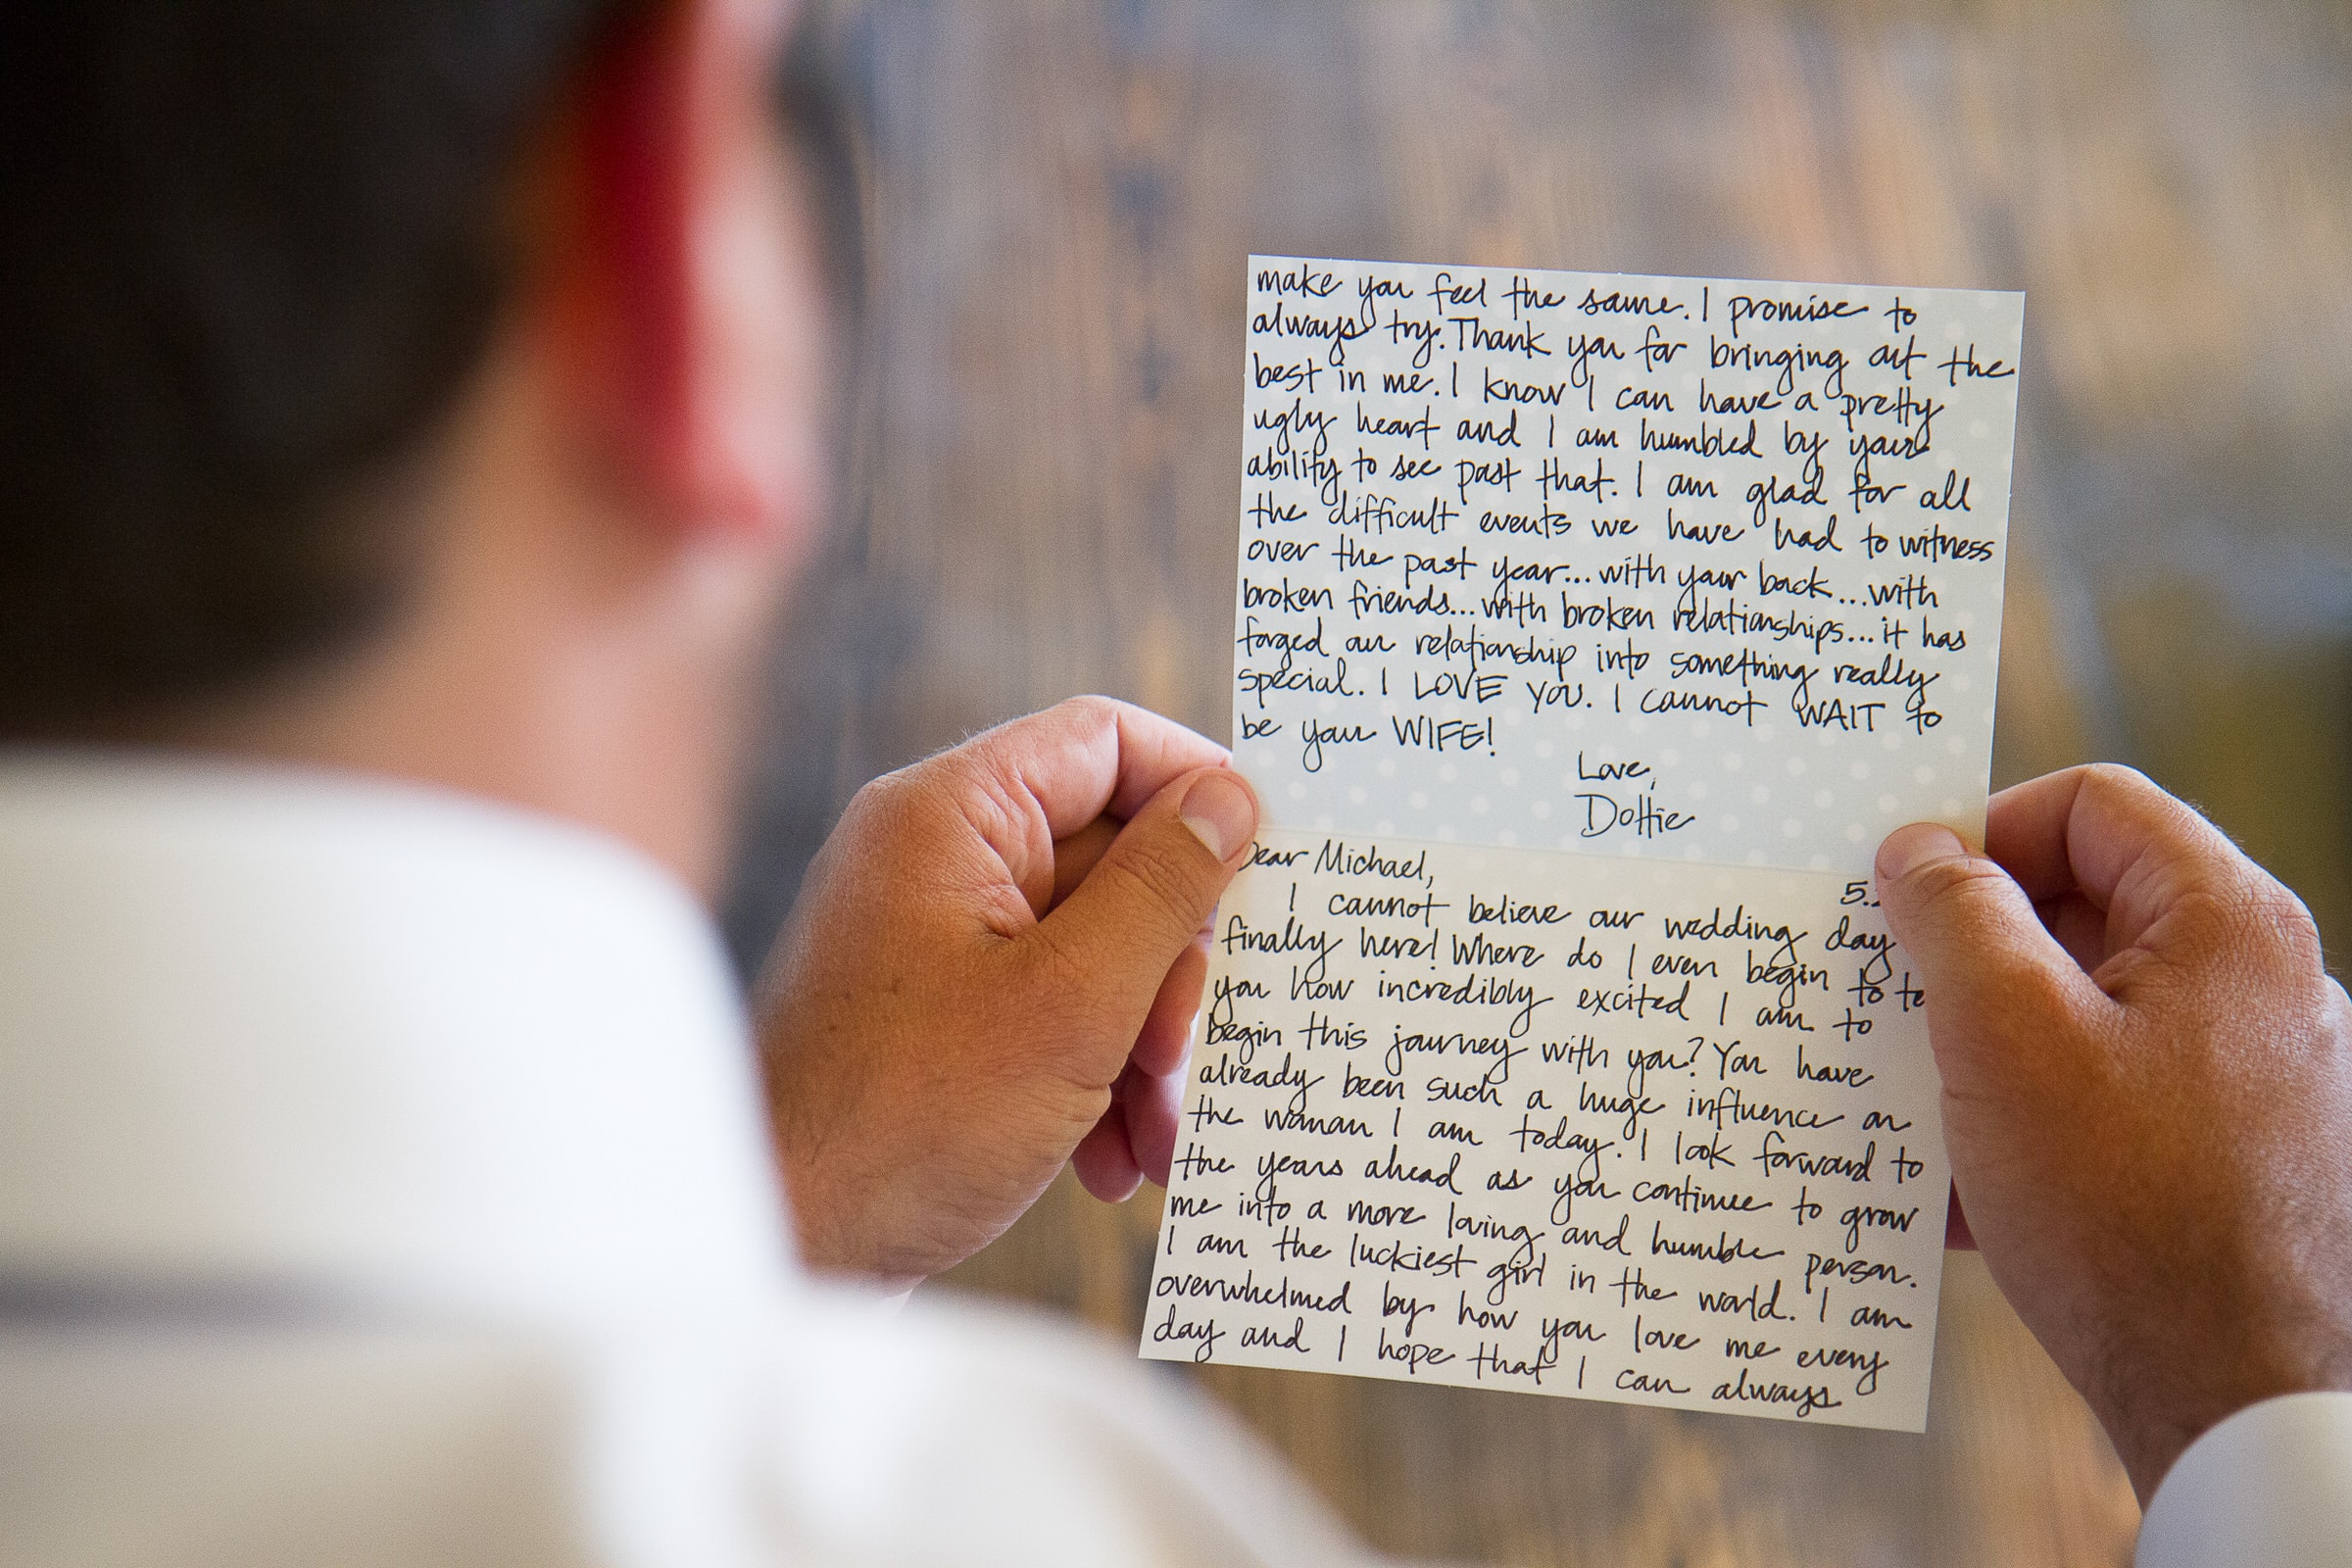 make you feel the same. I promise to
always try. Thank you for bringing out the
best in me. I know I can have a pretty
ugly heart and I am humbled by your
ability to see past that. I am glad for all
the difficult events we have had to witness
over the past year...with your back...with
broken friends...with broken relationships...it has
forged our relationship into something really
special. I LOVE YOU. I cannot WAIT to
be your WIFE!
Love,
Dottie
Dear Michael,
5.
I cannot believe our wedding day
finally here! Where do I even begin to te
you how incredibly excited I am to
begin this journey with you? You have
already been such a huge influence on
the woman I am today. I look forward to
the years ahead as you continue to grow
me into a more loving and humble person.
I am the luckiest girl in the world. I am
overwhelmed by how you love me every
day and I hope that I can always